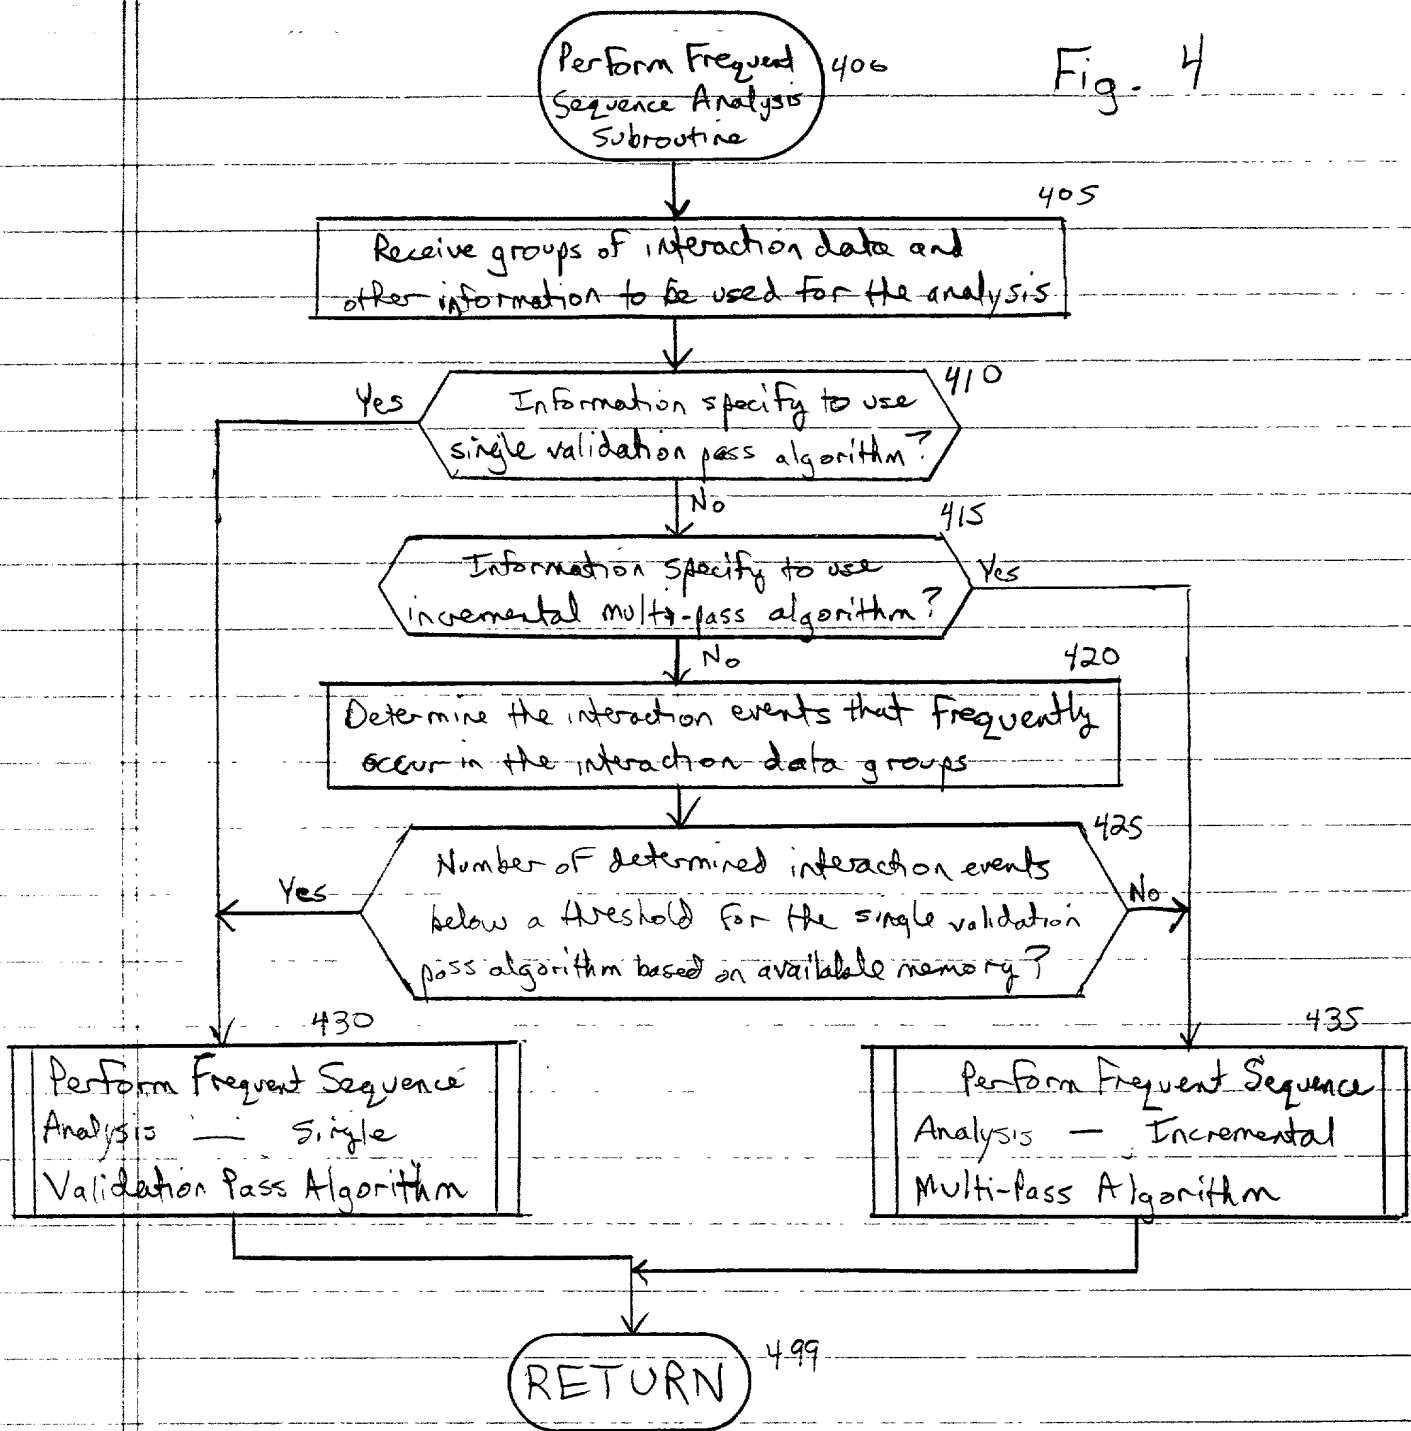 Fig. 4
Perform Frequent
Sequence Analysis
Subroutine
400
405
Receive groups of interaction data and
other information to be used for the analysis
410
Yes
Information specify to use
single validation pass algorithm?
No
415
Information specify to use
incremental multi-pass algorithm?
Yes
No
420
Determine the interaction events that frequently
occur in the interaction data groups
425
Number of determined interaction events
below a threshold for the single validation
pass algorithm based on available memory?
Yes
No
430
Perform Frequent Sequence
Analysis — Single
Validation Pass Algorithm
435
Perform Frequent Sequence
Analysis — Incremental
Multi-Pass Algorithm
RETURN
499